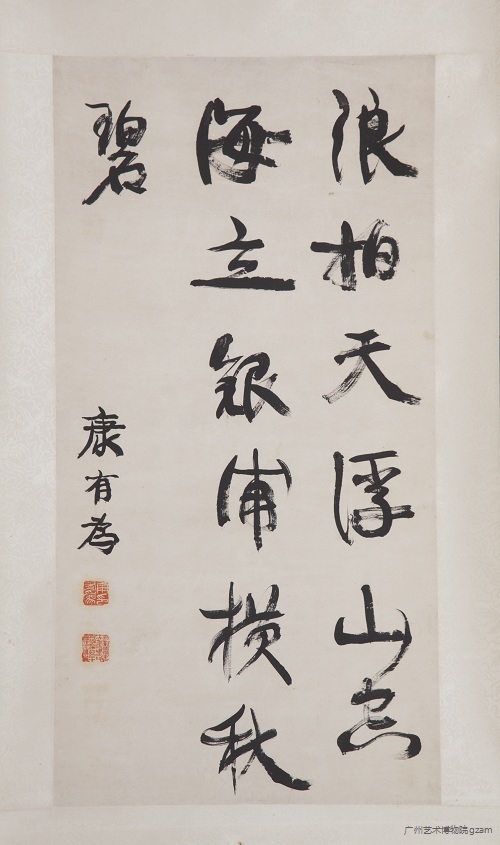 浪拍天浮山
海立銀橫秋
碧
康有為
广州艺术博物院gzam